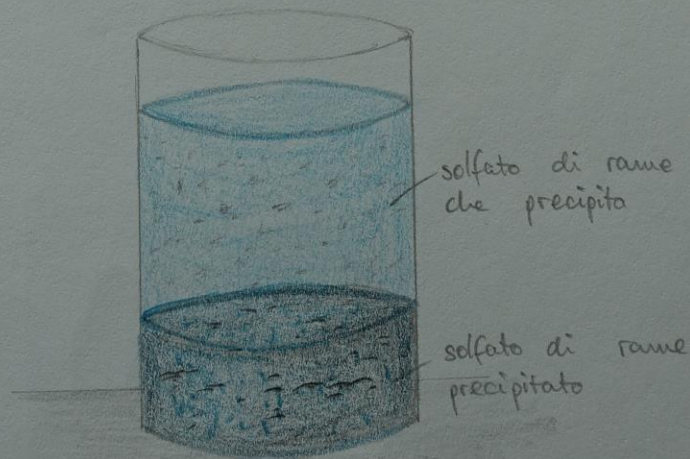 solfato di rame
che precipita
solfato di rame
precipitato